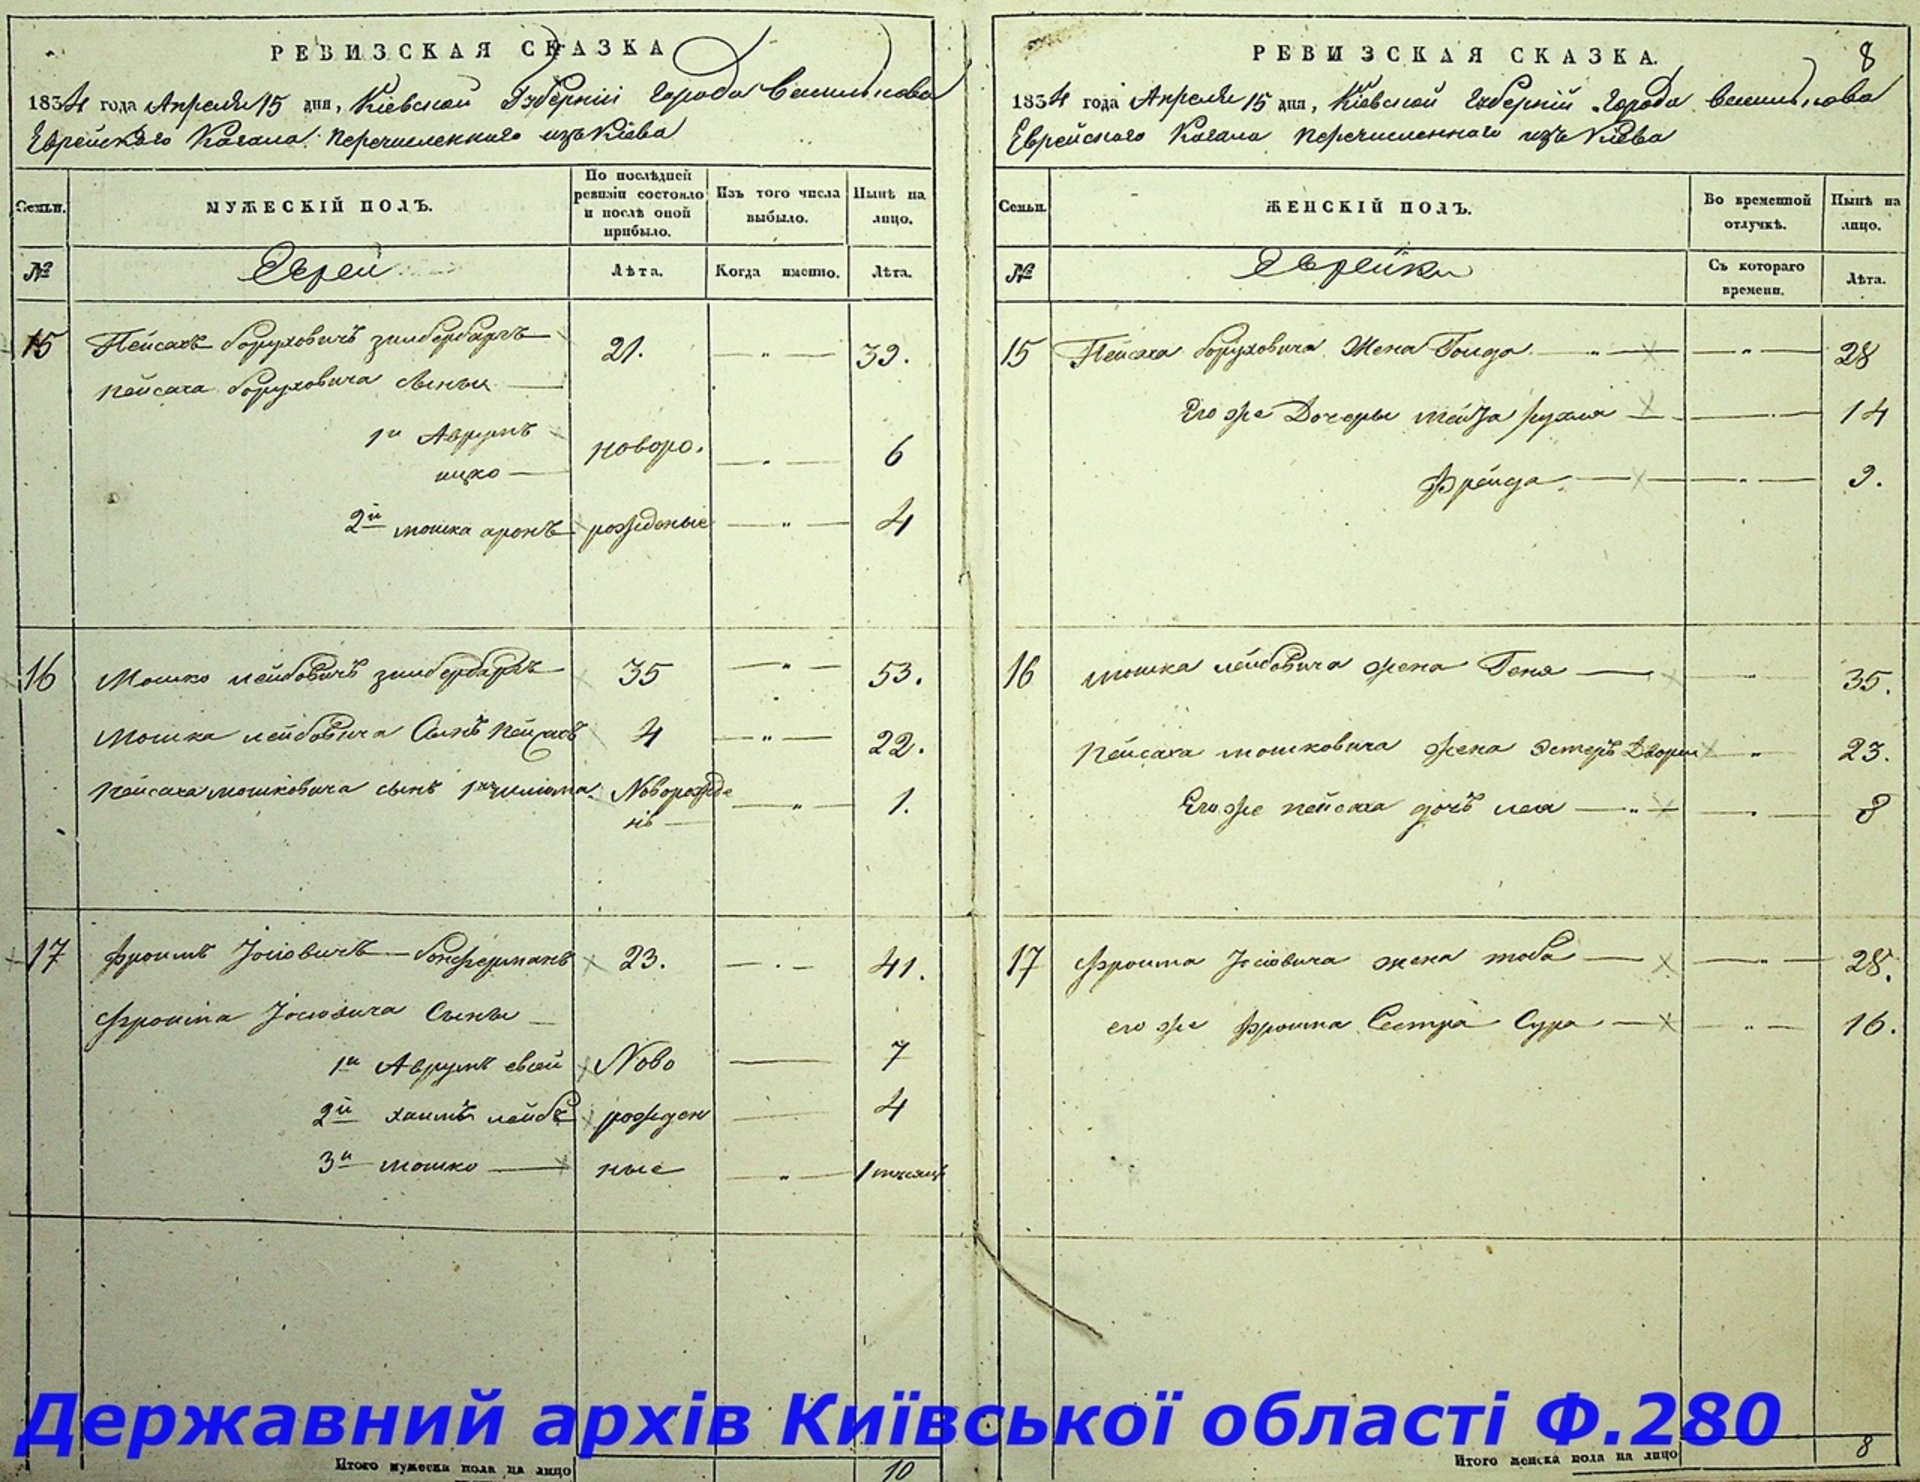 РЕВИЗСКАЯ СКАЗКА
1834 года Апреля 15 дня, Кіевской Губерніи города Василькова
Еврейского Кагала перечисленного изъ Кіева
Семьи.
МУЖЕСКІЙ ПОЛЪ.
По послѣдней ревизіи состояло и послѣ оной прибыло.
Изъ того числа выбыло.
Нынѣ на лицо.
№
Еврей
Лѣта.
Когда именно.
Лѣта.
15 Пейсахъ Боруховичъ Зильбербаргъ 21. — „ — 39.
Пейсаха Боруховича сыны
1й Аврумъ
ицко — новоро. — „ — 6
2й мошка аронъ рожденые — „ — 4
16 Мошко лейбовичъ зильбербаргъ 35 — „ — 53.
Мошка лейбовича Сынъ Пейсахъ 4 — „ — 22.
Пейсаха мошковича сынъ 1й Новорожде — „ — 1.
нъ
17 Фроимъ Іосіовичъ 23. — „ — 41.
Фроима Іосіовича Сыны
1й Аврумъ евсей Ново — 7
2й хаимъ лейбъ рожден — 4
3й мошко — ные — „ — 1 месяцъ
Итого мужеска пола на лицо 10
РЕВИЗСКАЯ СКАЗКА. 8
1834 года Апреля 15 дня, Кіевской губерній города Василькова
Еврейского Кагала перечисленного изъ Кіева
Семьи.
ЖЕНСКІЙ ПОЛЪ.
Во временной отлучкѣ.
Нынѣ на лицо.
№
Еврейки
Съ котораго времени.
Лѣта.
15 Пейсаха Боруховича Жена Голда — „ — 28
Его же Дочеры рухля — 14
Фрейда — „ — 9.
16 мошка лейбовича жена Геня — „ — 35.
Пейсаха мошковича жена Эстеръ Двория „ 23.
Его же пейсаха дочъ лея — „ — 8
17 Фроима Іосіовича жена тоба — „ — 28.
его же Фроима Сестра Сура — „ — 16.
Итого женска пола на лицо 8
Державний архів Київської області Ф.280